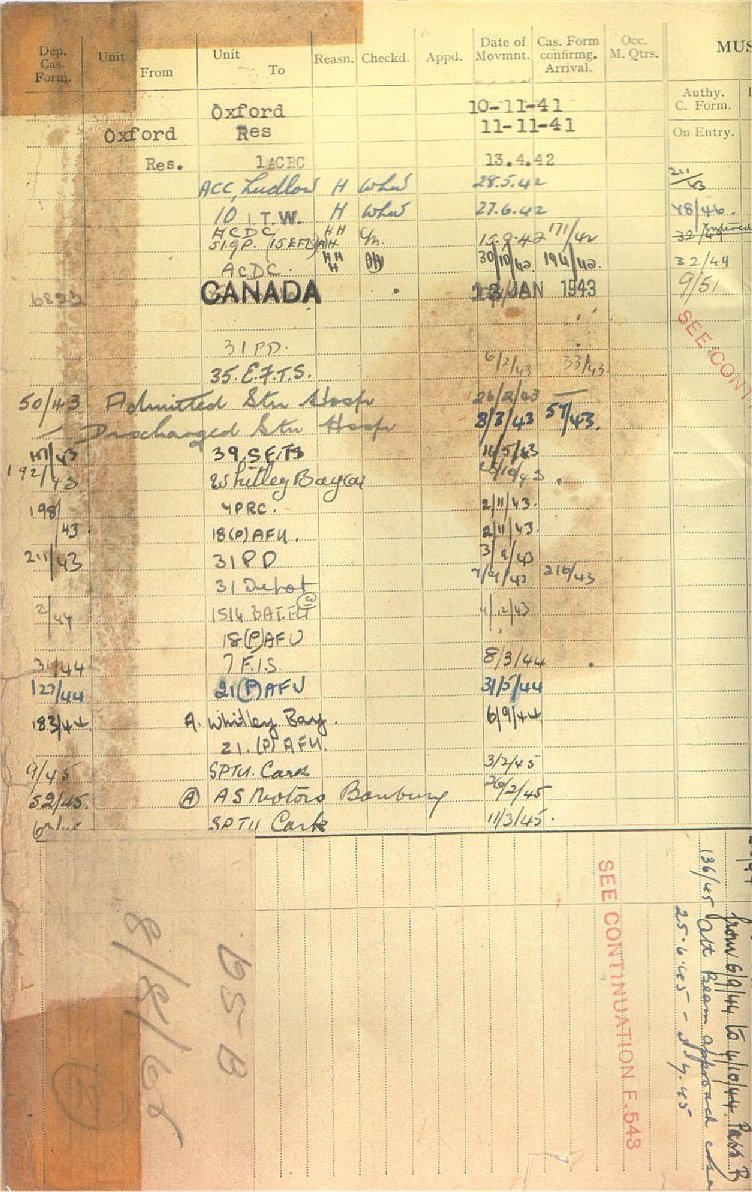 Dep. Cas. Form. Unit From Unit To Reasn. Checkd. Appd. Date of Movmnt. Cas. Form confirmg. Arrival. Occ. M. Qtrs. MUS
Authy. C. Form.
On Entry.
Oxford 10-11-41
Oxford Res 11-11-41
Res. 1 ACRC 13.4.42
ACC, Ludlow H 28.5.42
10 I.T.W. H 27.6.42 48/46
ACDC HH 171/42 32/49
51 gp. 15 EFTS 15.9.42
ACDC. HH H 30/10/42 194/42. 32/49
CANADA 13 JAN 1943 9/51
31 PD.
35. E.F.T.S. 6/2/43 33/43
50/43 Admitted Stn Hosp 26/2/43
Discharged Stn Hosp 8/3/43 57/43.
39. S.F.T.S 14/5/43
192/43 Whitley Bay
198/43 4 PRC. 2/11/43.
18 (P) AFU. 2/11/43.
211/43 31 PD
31 Depot 210/43
2/44 1514 BAT. FLT
18 (P) AFU
31/44 7 F.I.S. 8/3/44
127/44 21 (P) AFU 31/5/44
183/44 A. Whitley Bay. 6/9/44
21. (P) AFU.
9/45 SPTU. Cark 3/2/45
52/45. (A) AS Motors Banbury 26/2/45
SPTU Cark 11/3/45.
SEE CONT
SEE CONTINUATION F.543
from 6/9/44 to 4/10/44. Pass B
136/45 Att Beam approach
25.6.45
8/8/62